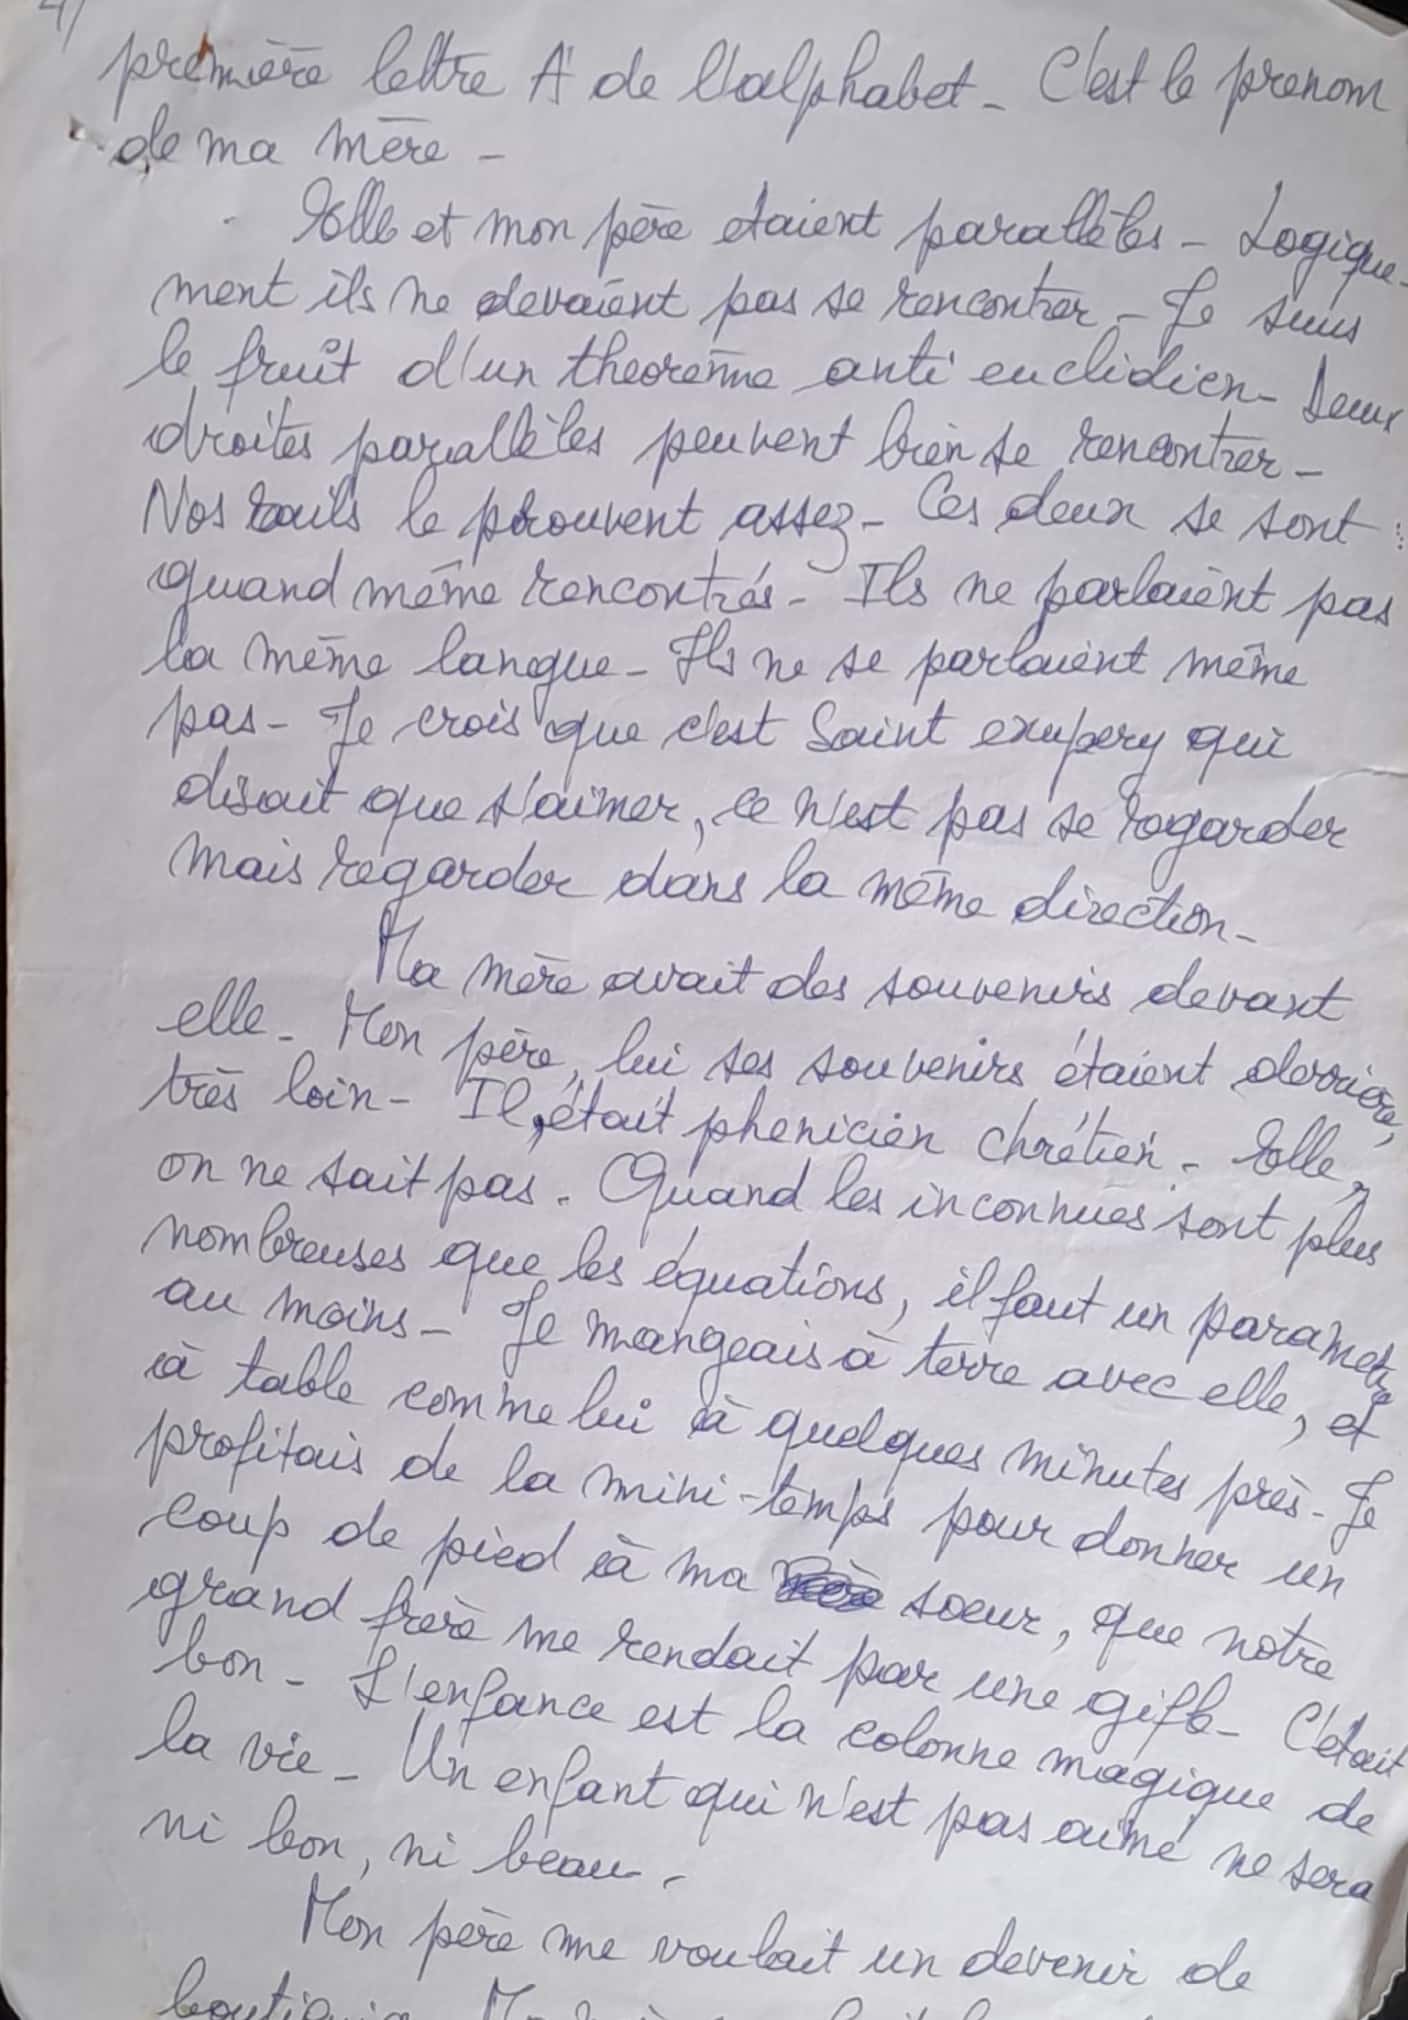 4/
première lettre A de l'alphabet - C'est le prenom
de ma mère -
Elle et mon père etaient parallèles - Logique-
ment ils ne devaient pas se rencontrer - Je suis
le fruit d'un theorème anti euclidien - Deux
droites parallèles peuvent bien se rencontrer -
Nos rails le prouvent assez - Ces deux se sont
quand même rencontrés - Ils ne parlaient pas
la même langue - Ils ne se parlaient même
pas - Je crois que c'est Saint exupery qui
disait que s'aimer, ce n'est pas se regarder
mais regarder dans la même direction -
Ma mère avait des souvenirs devant
elle - Mon père, lui ses souvenirs étaient derrière,
très loin - Il était phenicien chrétien - Elle,
on ne sait pas. Quand les inconnues sont plus
nombreuses que les équations, il faut un parametre
au moins - Je mangeais à terre avec elle, et
à table comme lui à quelques minutes près - Je
profitais de la mini-temps pour donner un
coup de pied à ma soeur, que notre
grand frère me rendait par une gifle - C'était
bon - L'enfance est la colonne magique de
la vie - Un enfant qui n'est pas aimé ne sera
ni bon, ni beau -
Mon père me voulait un devenir de